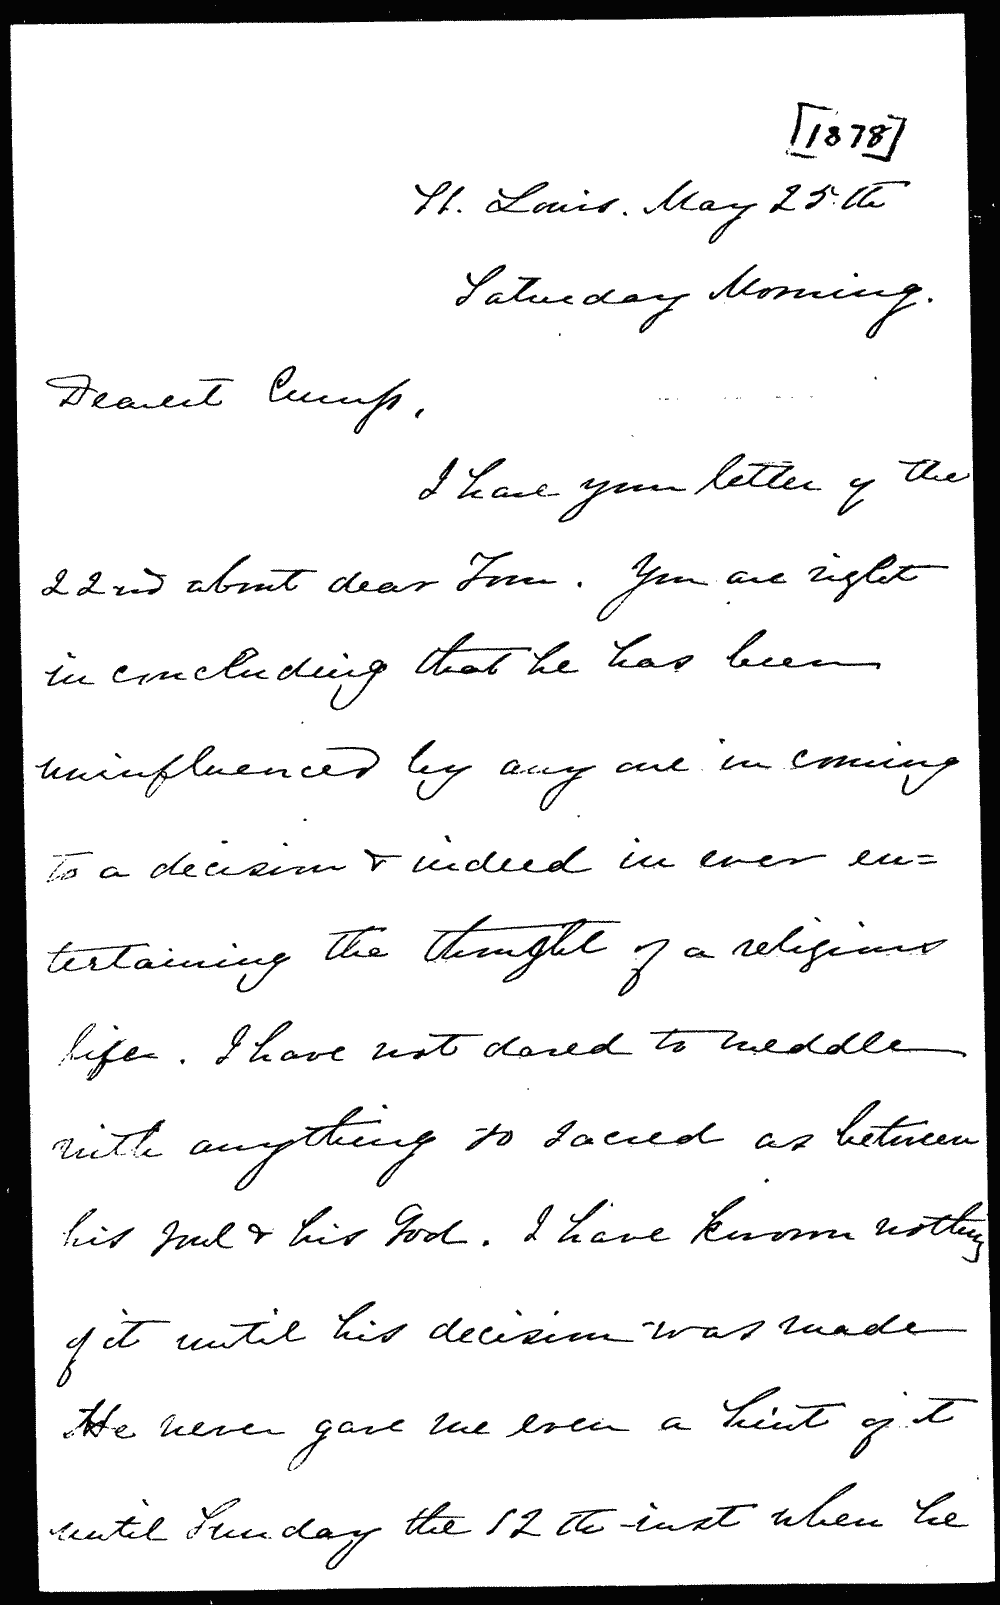 [1878]
St. Louis. May 25th
Saturday Morning.
Dearest Cump,
I have your letter of the
22nd about dear Tom. You are right
in concluding that he has been
uninfluenced by any one in coming
to a decision & indeed in ever en=
tertaining the thought of a religious
life. I have not dared to meddle
with anything so sacred as between
his soul & his God. I have known nothing
of it until his decision was made
He never gave me even a hint of it
until Sunday the 12th inst when he